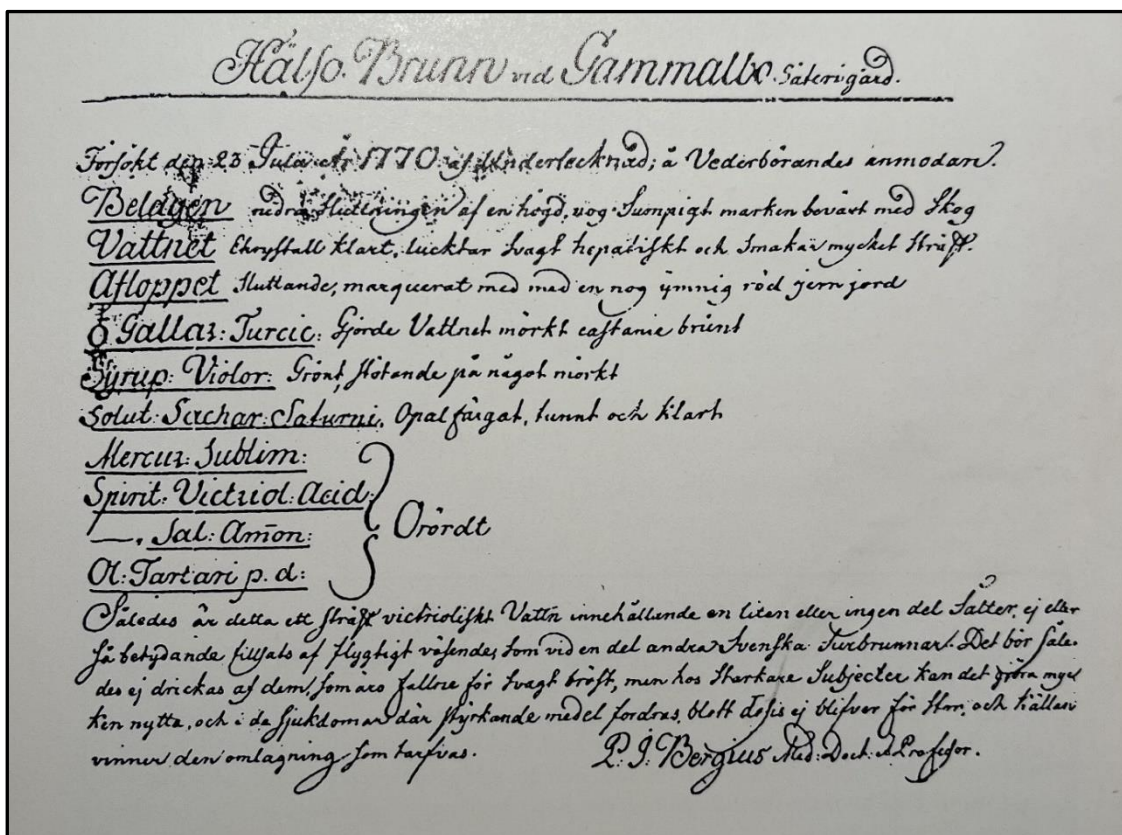 Hälso Brunn vid Gammalbo Säterigård.
Försökt den 23 Julii År 1770 af Undertecknad; å Vederbörandes anmodan.
Belägen nedra sluttningen af en högd, nog Sumpigt marken beväxt med Skog
Vattnet Chrystall klart, lucktar svagt hepatiskt och smakar mycket sträft.
Afloppet sluttande, marquerat med med en nog ymnig röd jern jord
Gallar: Turcic: Gjorde Vattnet mörkt castanie brunt
Syrup: Violor: Grönt, stötande på något mörkt
Solut: Sachar: Saturni, Opalfärgat, tunnt och klart
Mercur: Sublim:
Spirit: Victriol: Acid:
—, Sal: Amon:
Orördt
Ol: Tartari p. d:
Således är detta ett sträft victrioliskt Vattn innehållande en liten eller ingen del Salter, ej eller
så betydande tillsats af flygtigt väsende, som vid en del andra Svenska Surbrunnar. Det bör såle-
des ej drickas af dem, som äro fallne för svagt bröst, men hos starkare Subjecter kan det göra myc
ken nytta, och i de sjukdomar där styrkande medel fordras, blott dosis ej blifver för stor, och källan
vinner den omlagning som tarfvas.
P. J. Bergius Med: Doct: & Professor.